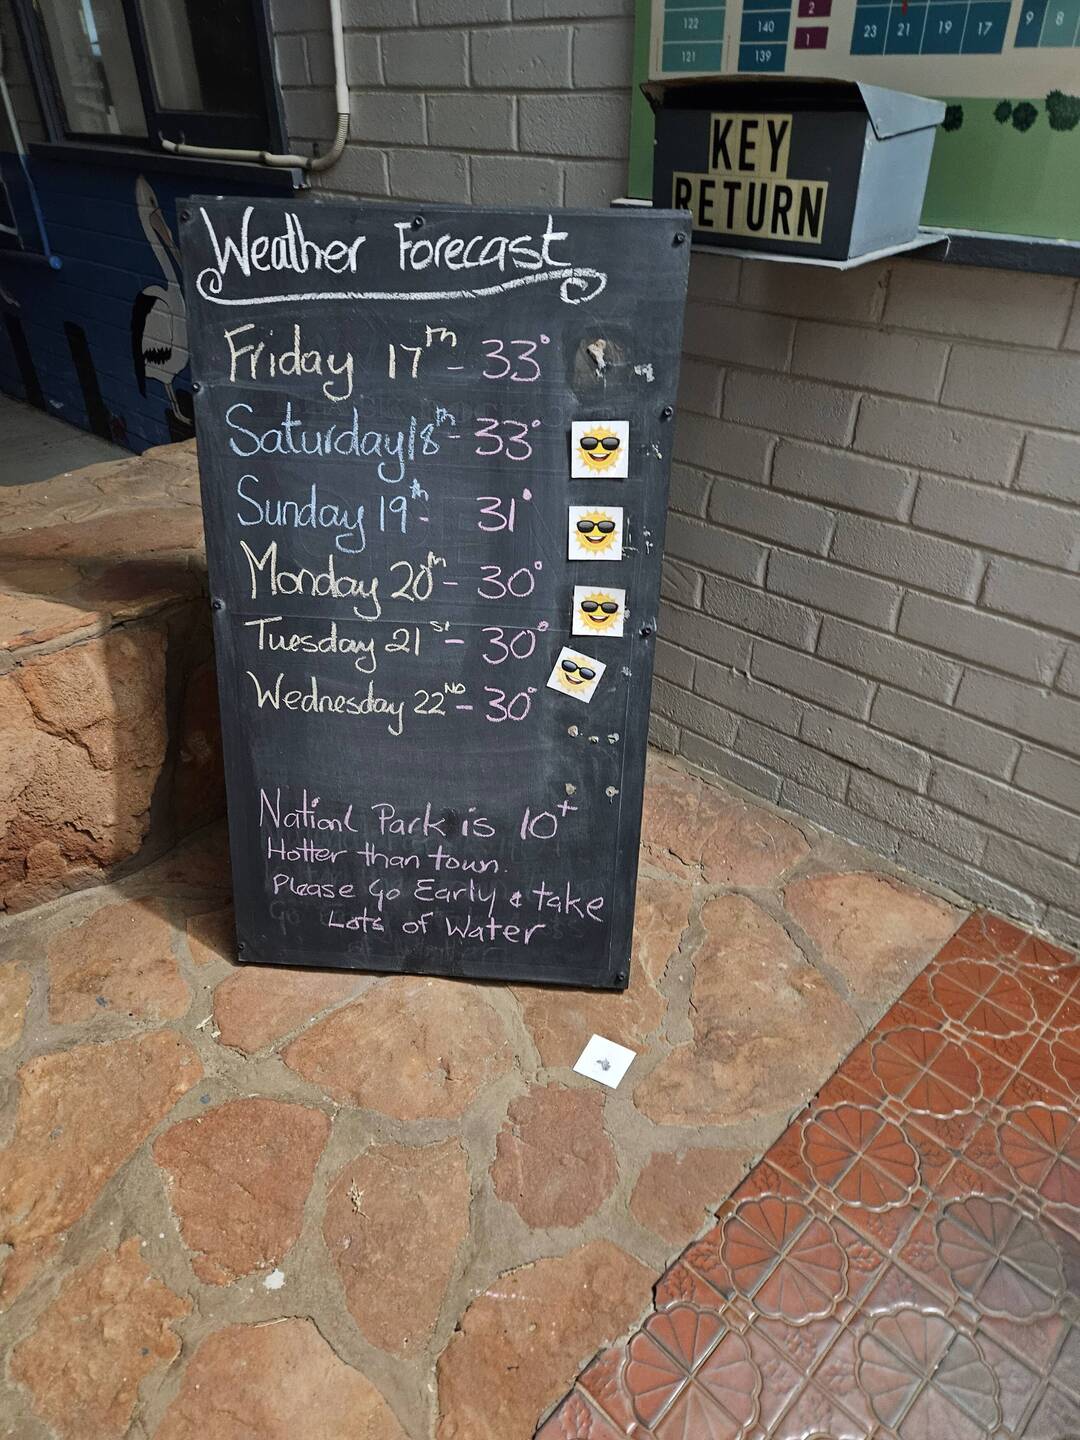 122
121
140
139
2
1
23 21 19 17
9 8
KEY
RETURN
Weather Forecast
Friday 17th - 33°
Saturday 18th - 33°
Sunday 19th - 31°
Monday 20th - 30°
Tuesday 21st - 30°
Wednesday 22ND - 30°
Nationl Park is 10+
Hotter than town.
Please Go Early & take
Lots of Water